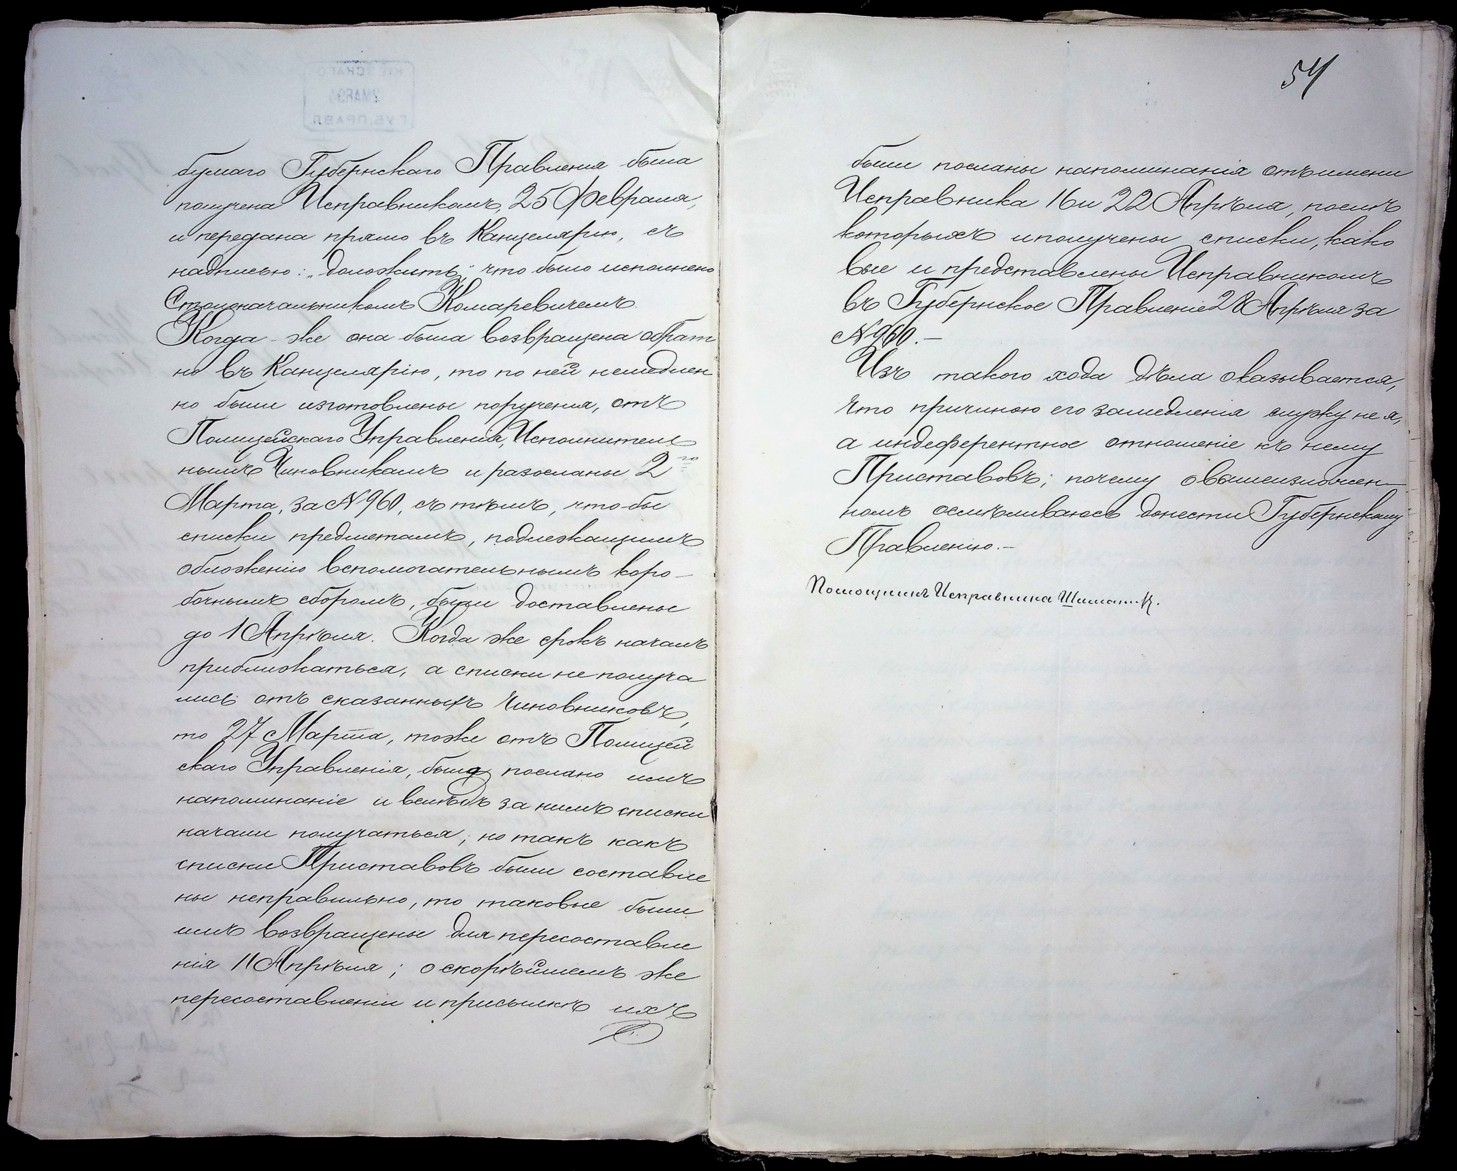 бумаго Губернскаго Правленія была
получена Исправникомъ, 25 Февраля,
и передана прямо въ Канцелярію, съ
надписью: „доложить", что было исполнено
Столоначальникомъ Комаревичемъ
Когда-же она была возвращена обрат
но въ Канцелярію, то по ней немедлен
но были изготовлены порученія, отъ
Полицейскаго Управленія, Исполнитель
нымъ Чиновникамъ и разосланы 2го
Марта, за № 960, съ тѣмъ, что-бы
списки предметамъ, подлежащимъ
обложенію вспомогательнымъ коро-
бочнымъ сборомъ, были доставлены
до 1 Апрѣля. Когда же срокъ началъ
приближаться, а списки не получа
лись отъ сказанныхъ Чиновниковъ,
то 27 Марта, тоже отъ Полицей
скаго Управленія, было послано имъ
напоминаніе и вслѣдъ за нимъ списки
начали получаться; но такъ какъ
списки Приставовъ были составле
ны неправильно, то таковые были
имъ возвращены для пересоставле
нія 11 Апрѣля; о скорѣйшемъ же
пересоставленіи и присылкѣ ихъ
54
были посланы напоминанія отъ имени
Исправника 16 и 22 Апрѣля, послѣ
которыхъ и получены списки, како
вые и представлены Исправникомъ
въ Губернское Правленіе 28 Апрѣля за
№ 960.-
Изъ такого хода дѣла оказывается,
что причиною его замедленія служу не я,
а индеферентное отношеніе къ нему
Приставовъ; почему о вышеизложен-
номъ осмѣливаюсь донести Губернскому
Правленію.-
Помощникъ Исправника